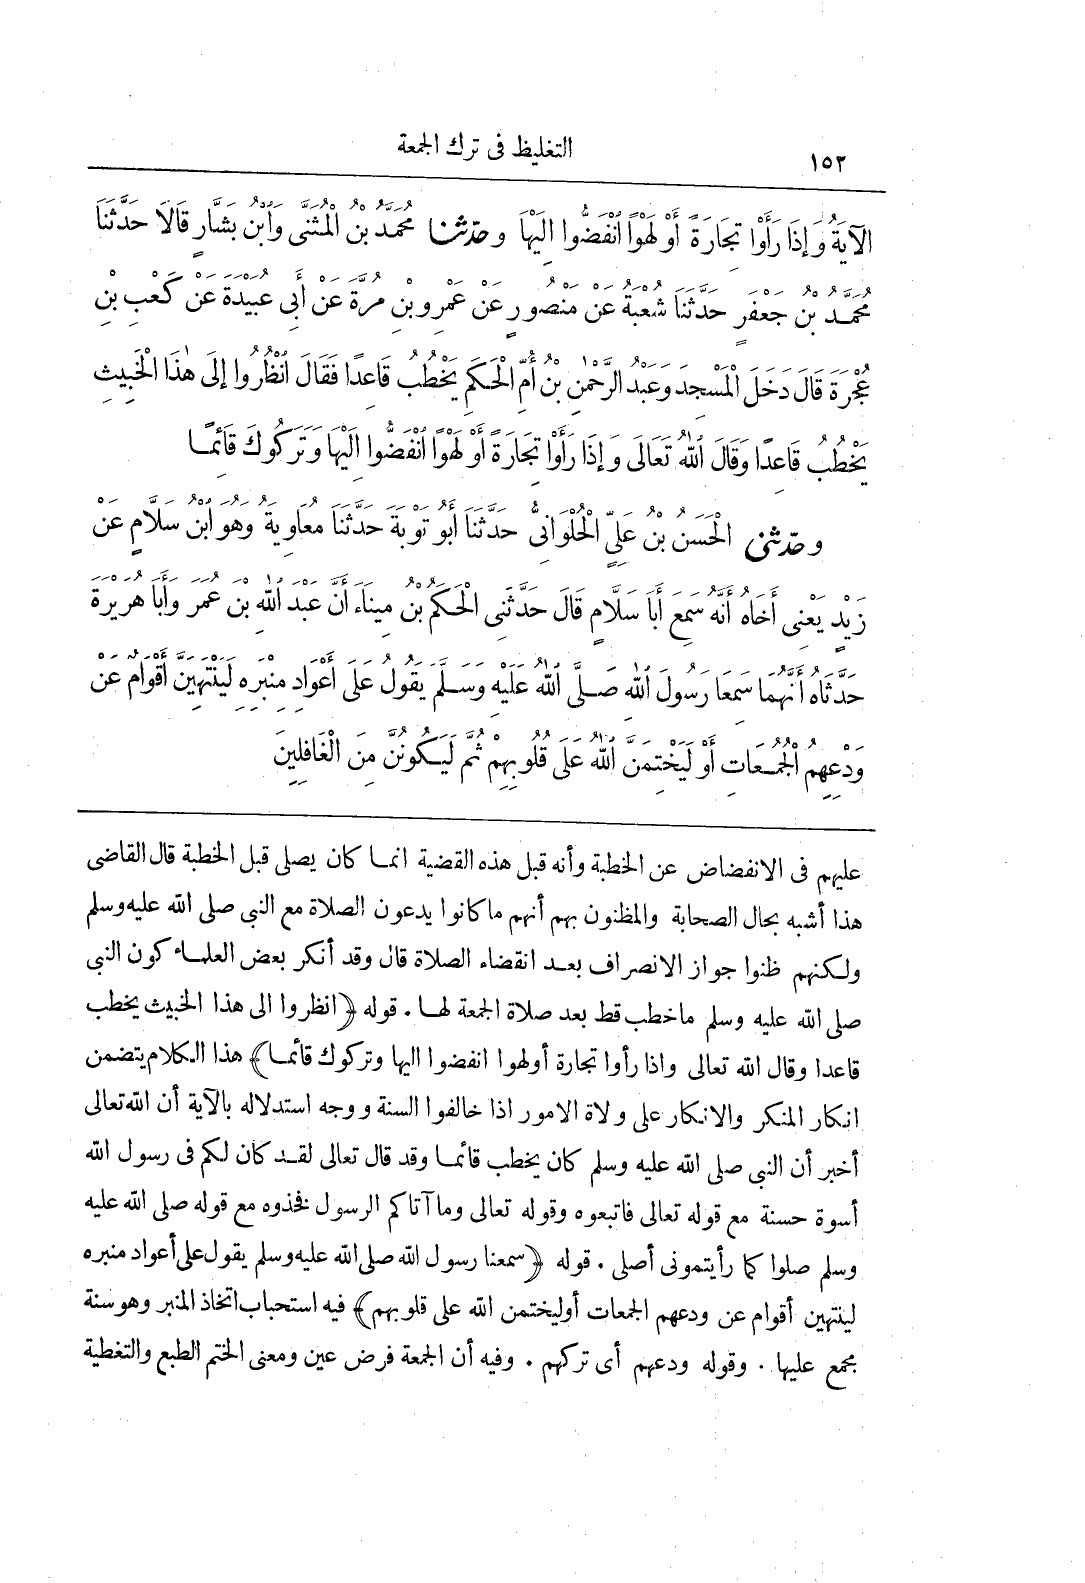 ١٥٢
التغليظ فى ترك الجمعة
الآيَةُ وَإِذَا رَأَوْا تِجَارَةً أَوْ لَهْوًا انْفَضُّوا إِلَيْهَا وحَدَّثَنَا مُحَمَّدُ بْنُ الْمُثَنَّى وَابْنُ بَشَّارٍ قَالَا حَدَّثَنَا
مُحَمَّدُ بْنُ جَعْفَرٍ حَدَّثَنَا شُعْبَةُ عَنْ مَنْصُورٍ عَنْ عَمْرِو بْنِ مُرَّةَ عَنْ أَبِى عُبَيْدَةَ عَنْ كَعْبِ بْنِ
عُجْرَةَ قَالَ دَخَلَ الْمَسْجِدَ وَعَبْدُ الرَّحْمٰنِ بْنُ أُمِّ الْحَكَمِ يَخْطُبُ قَاعِدًا فَقَالَ انْظُرُوا إِلَى هٰذَا الْخَبِيثِ
يَخْطُبُ قَاعِدًا وَقَالَ اللهُ تَعَالَى وَإِذَا رَأَوْا تِجَارَةً أَوْ لَهْوًا انْفَضُّوا إِلَيْهَا وَتَرَكُوكَ قَائِمًا
وحَدَّثَنِى الْحَسَنُ بْنُ عَلِيٍّ الْحُلْوَانِىُّ حَدَّثَنَا أَبُو تَوْبَةَ حَدَّثَنَا مُعَاوِيَةُ وَهُوَ ابْنُ سَلَّامٍ عَنْ
زَيْدٍ يَعْنِى أَخَاهُ أَنَّهُ سَمِعَ أَبَا سَلَّامٍ قَالَ حَدَّثَنِى الْحَكَمُ بْنُ مِينَاءَ أَنَّ عَبْدَ اللهِ بْنَ عُمَرَ وَأَبَا هُرَيْرَةَ
حَدَّثَاهُ أَنَّهُمَا سَمِعَا رَسُولَ اللهِ صَلَّى اللهُ عَلَيْهِ وَسَلَّمَ يَقُولُ عَلَى أَعْوَادِ مِنْبَرِهِ لَيَنْتَهِيَنَّ أَقْوَامٌ عَنْ
وَدْعِهِمُ الْجُمُعَاتِ أَوْ لَيَخْتِمَنَّ اللهُ عَلَى قُلُوبِهِمْ ثُمَّ لَيَكُونُنَّ مِنَ الْغَافِلِينَ
عليهم فى الانفضاض عن الخطبة وأنه قبل هذه القضية انما كان يصلى قبل الخطبة قال القاضى
هذا أشبه بحال الصحابة والمظنون بهم أنهم ما كانوا يدعون الصلاة مع النبى صلى الله عليه وسلم
ولكنهم ظنوا جواز الانصراف بعد انقضاء الصلاة قال وقد أنكر بعض العلماء كون النبى
صلى الله عليه وسلم ما خطب قط بعد صلاة الجمعة لها. قوله ﴿انظروا الى هذا الخبيث يخطب
قاعدا وقال الله تعالى واذا رأوا تجارة أو لهوا انفضوا اليها وتركوك قائما﴾ هذا الكلام يتضمن
انكار المنكر والانكار على ولاة الامور اذا خالفوا السنة ووجه استدلاله بالآية أن الله تعالى
أخبر أن النبى صلى الله عليه وسلم كان يخطب قائما وقد قال تعالى لقد كان لكم فى رسول الله
أسوة حسنة مع قوله تعالى فاتبعوه وقوله تعالى وما آتاكم الرسول فخذوه مع قوله صلى الله عليه
وسلم صلوا كما رأيتمونى أصلى. قوله ﴿سمعنا رسول الله صلى الله عليه وسلم يقول على أعواد منبره
لينتهين أقوام عن ودعهم الجمعات أو ليختمن الله على قلوبهم﴾ فيه استحباب اتخاذ المنبر وهو سنة
مجمع عليها. وقوله ودعهم أى تركهم. وفيه أن الجمعة فرض عين ومعنى الختم الطبع والتغطية